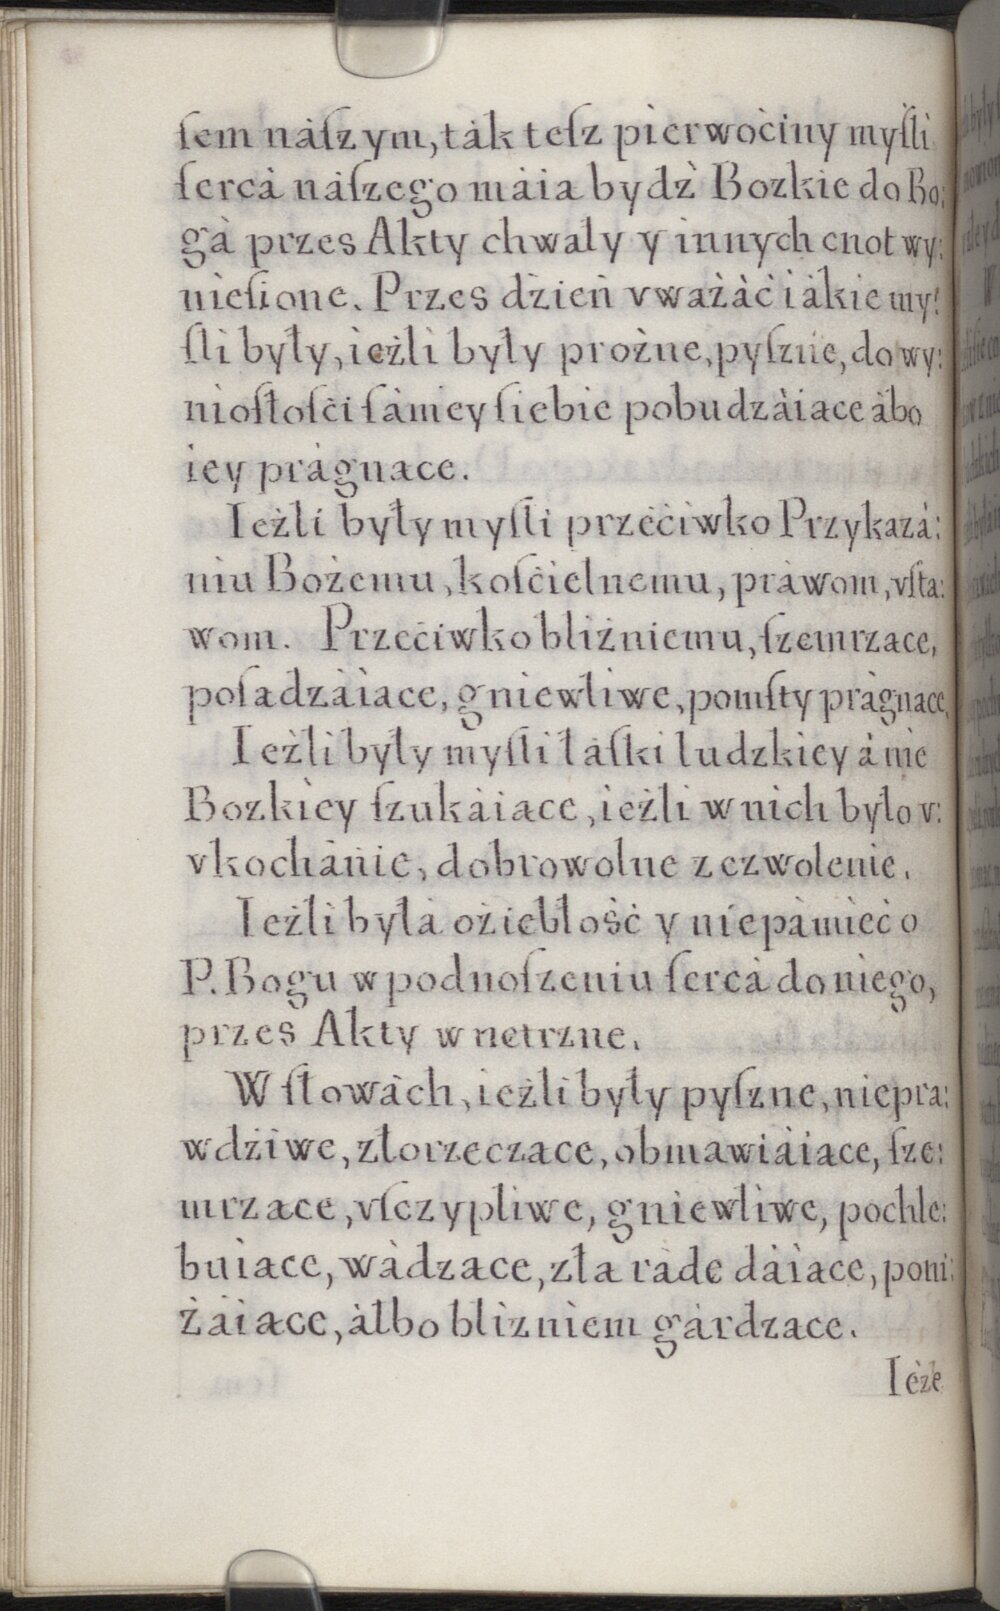 ſem náſzym, ták teſz pierwoċiny myſli
ſercá náſzego máia bydż Bozkie do Bo:
gà przes Akty chwały y innych cnot wy:
nieſione. Przes dżień vważàċ iákie my:
ſli były, ieżli były prożne, pyſzne, do wy:
nioſłoſċi ſàmey ſiebie pobudzàiace àbo
iey prágnace.
Ieżli były myſli przeċiwko Przykazá:
niu Bożemu, koſċielnemu, práwom, vſta:
wom. Przeċiwko bliżniemu, ſzemrzace,
poſadzáiace, gniewliwe, pomſty prágnace,
Ieżli były myſli łáſki ludzkiey á nie
Bozkiey ſzukáiace, ieżli w nich było v:
vkochánie, dobrowolne zezwolenie.
Ieżli byłá ożiebłośċ y niepámieċ o
P. Bogu w podnoſzeniu ſercá do niego,
przes Akty wnetrzne.
W ſłowách, ieżli były pyſzne, niepra:
wdżiwe, złorzeczace, obmawiáiace, ſze:
mrzace, vſczypliwe, gniewliwe, pochle:
buiace, wàdzace, zła ráde dáiace, poni:
żáiace, álbo blizniem gárdzace.
Ieże